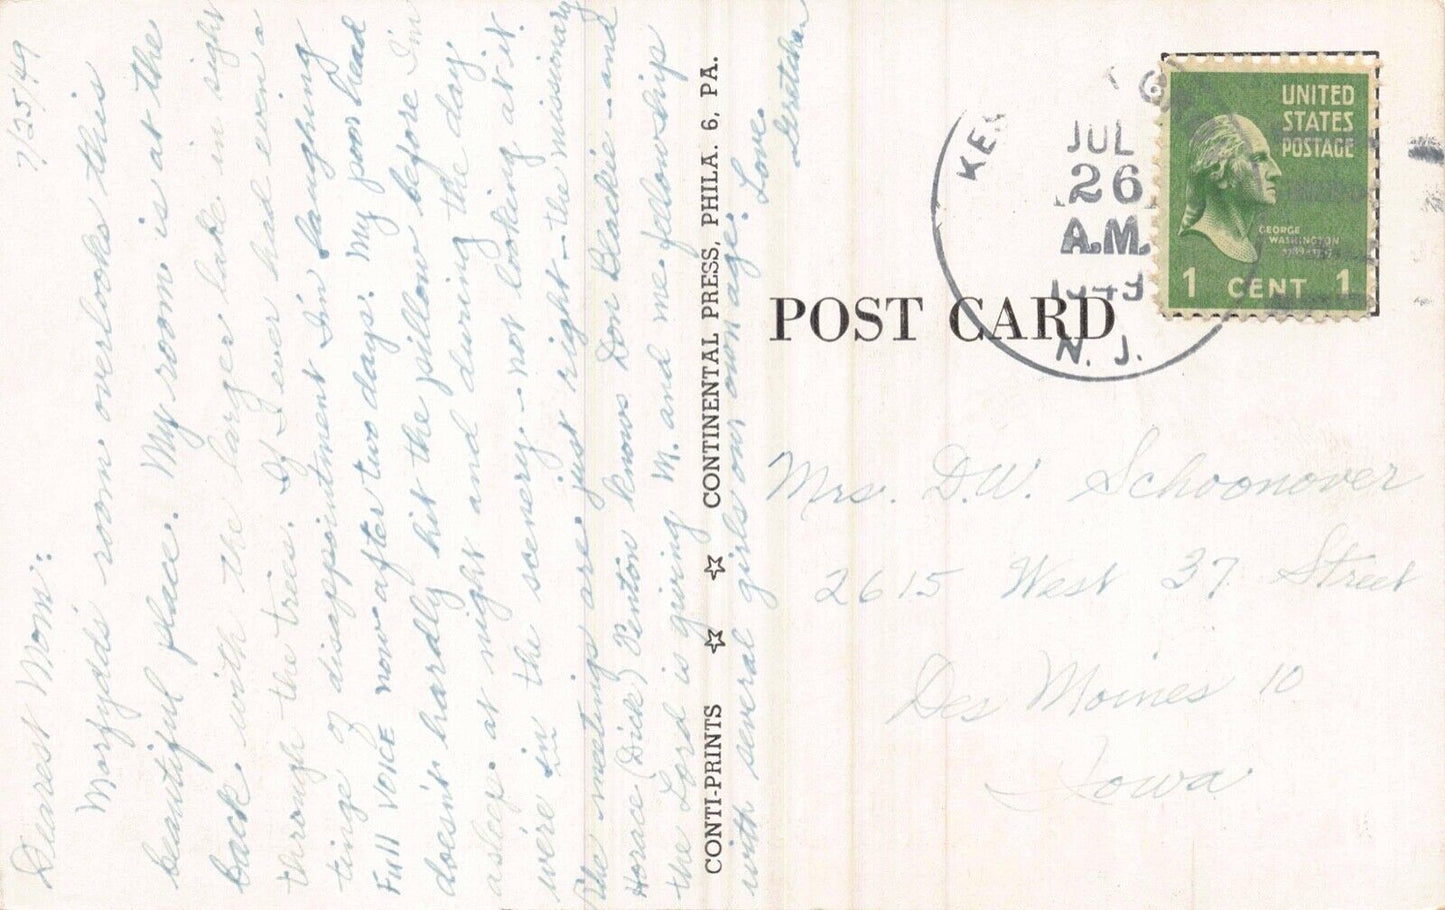 7/25/49
Dearest Mom:
Marydi's room overlooks this
beautiful place. My room is at the
back with the larger lake in sight
through the trees. If I ever had even a
tinge of disappointment I'm laughing
Full VOICE now after two days. My poor head
doesn't hardly hit the pillow before I'm
asleep at night and during the day
we're in the scenery - not looking at it.
The meetings are just right - the missionary
Horace (Dick) Fenton knows Don Blackie - and
the Lord is giving M. and me fellowship
with several girls our own age. Love.
Gretchen
CONTI-PRINTS ☆ ☆ CONTINENTAL PRESS, PHILA. 6, PA.
POST CARD
JUL
26
A.M.
1949
N. J.
UNITED
STATES
POSTAGE
GEORGE
WASHINGTON
1 CENT 1
Mrs. D.W. Schoonover
2615 West 37 Street
Des Moines 10
Iowa